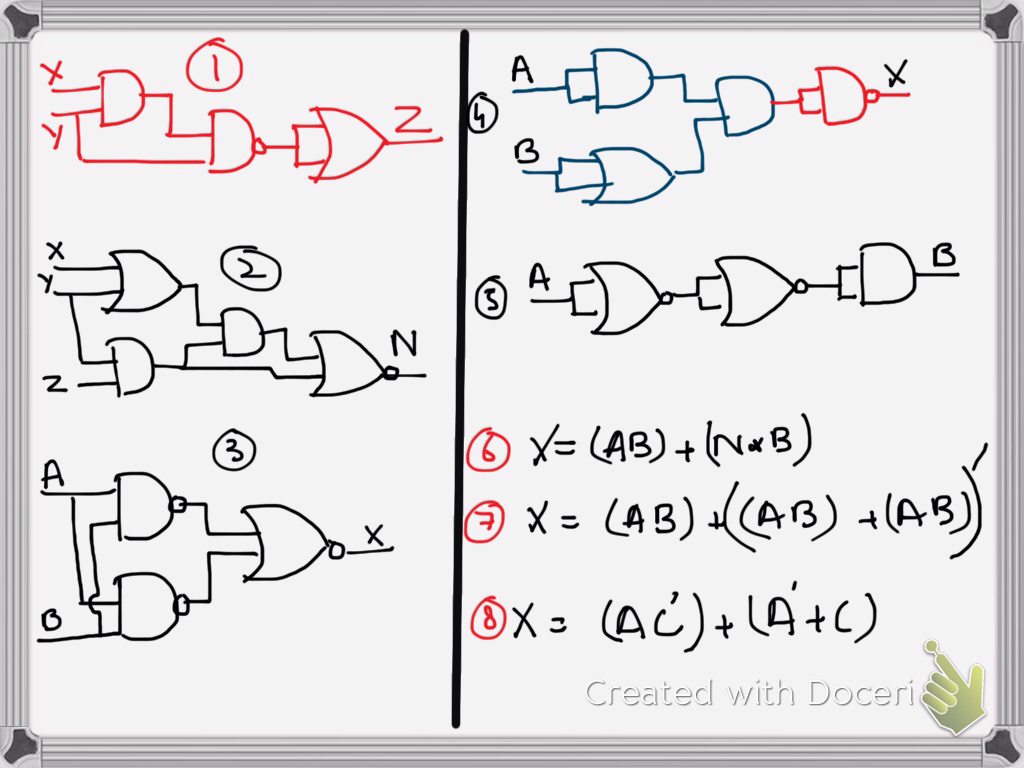 1
X
Y
Z
2
X
Y
Z
N
3
A
B
X
4
A
B
X
5
A
B
6 X = (AB) + (N*B)
7 X = (AB) + ((AB) + (AB))'
8 X = (AC') + (A'+C)
Created with Doceri